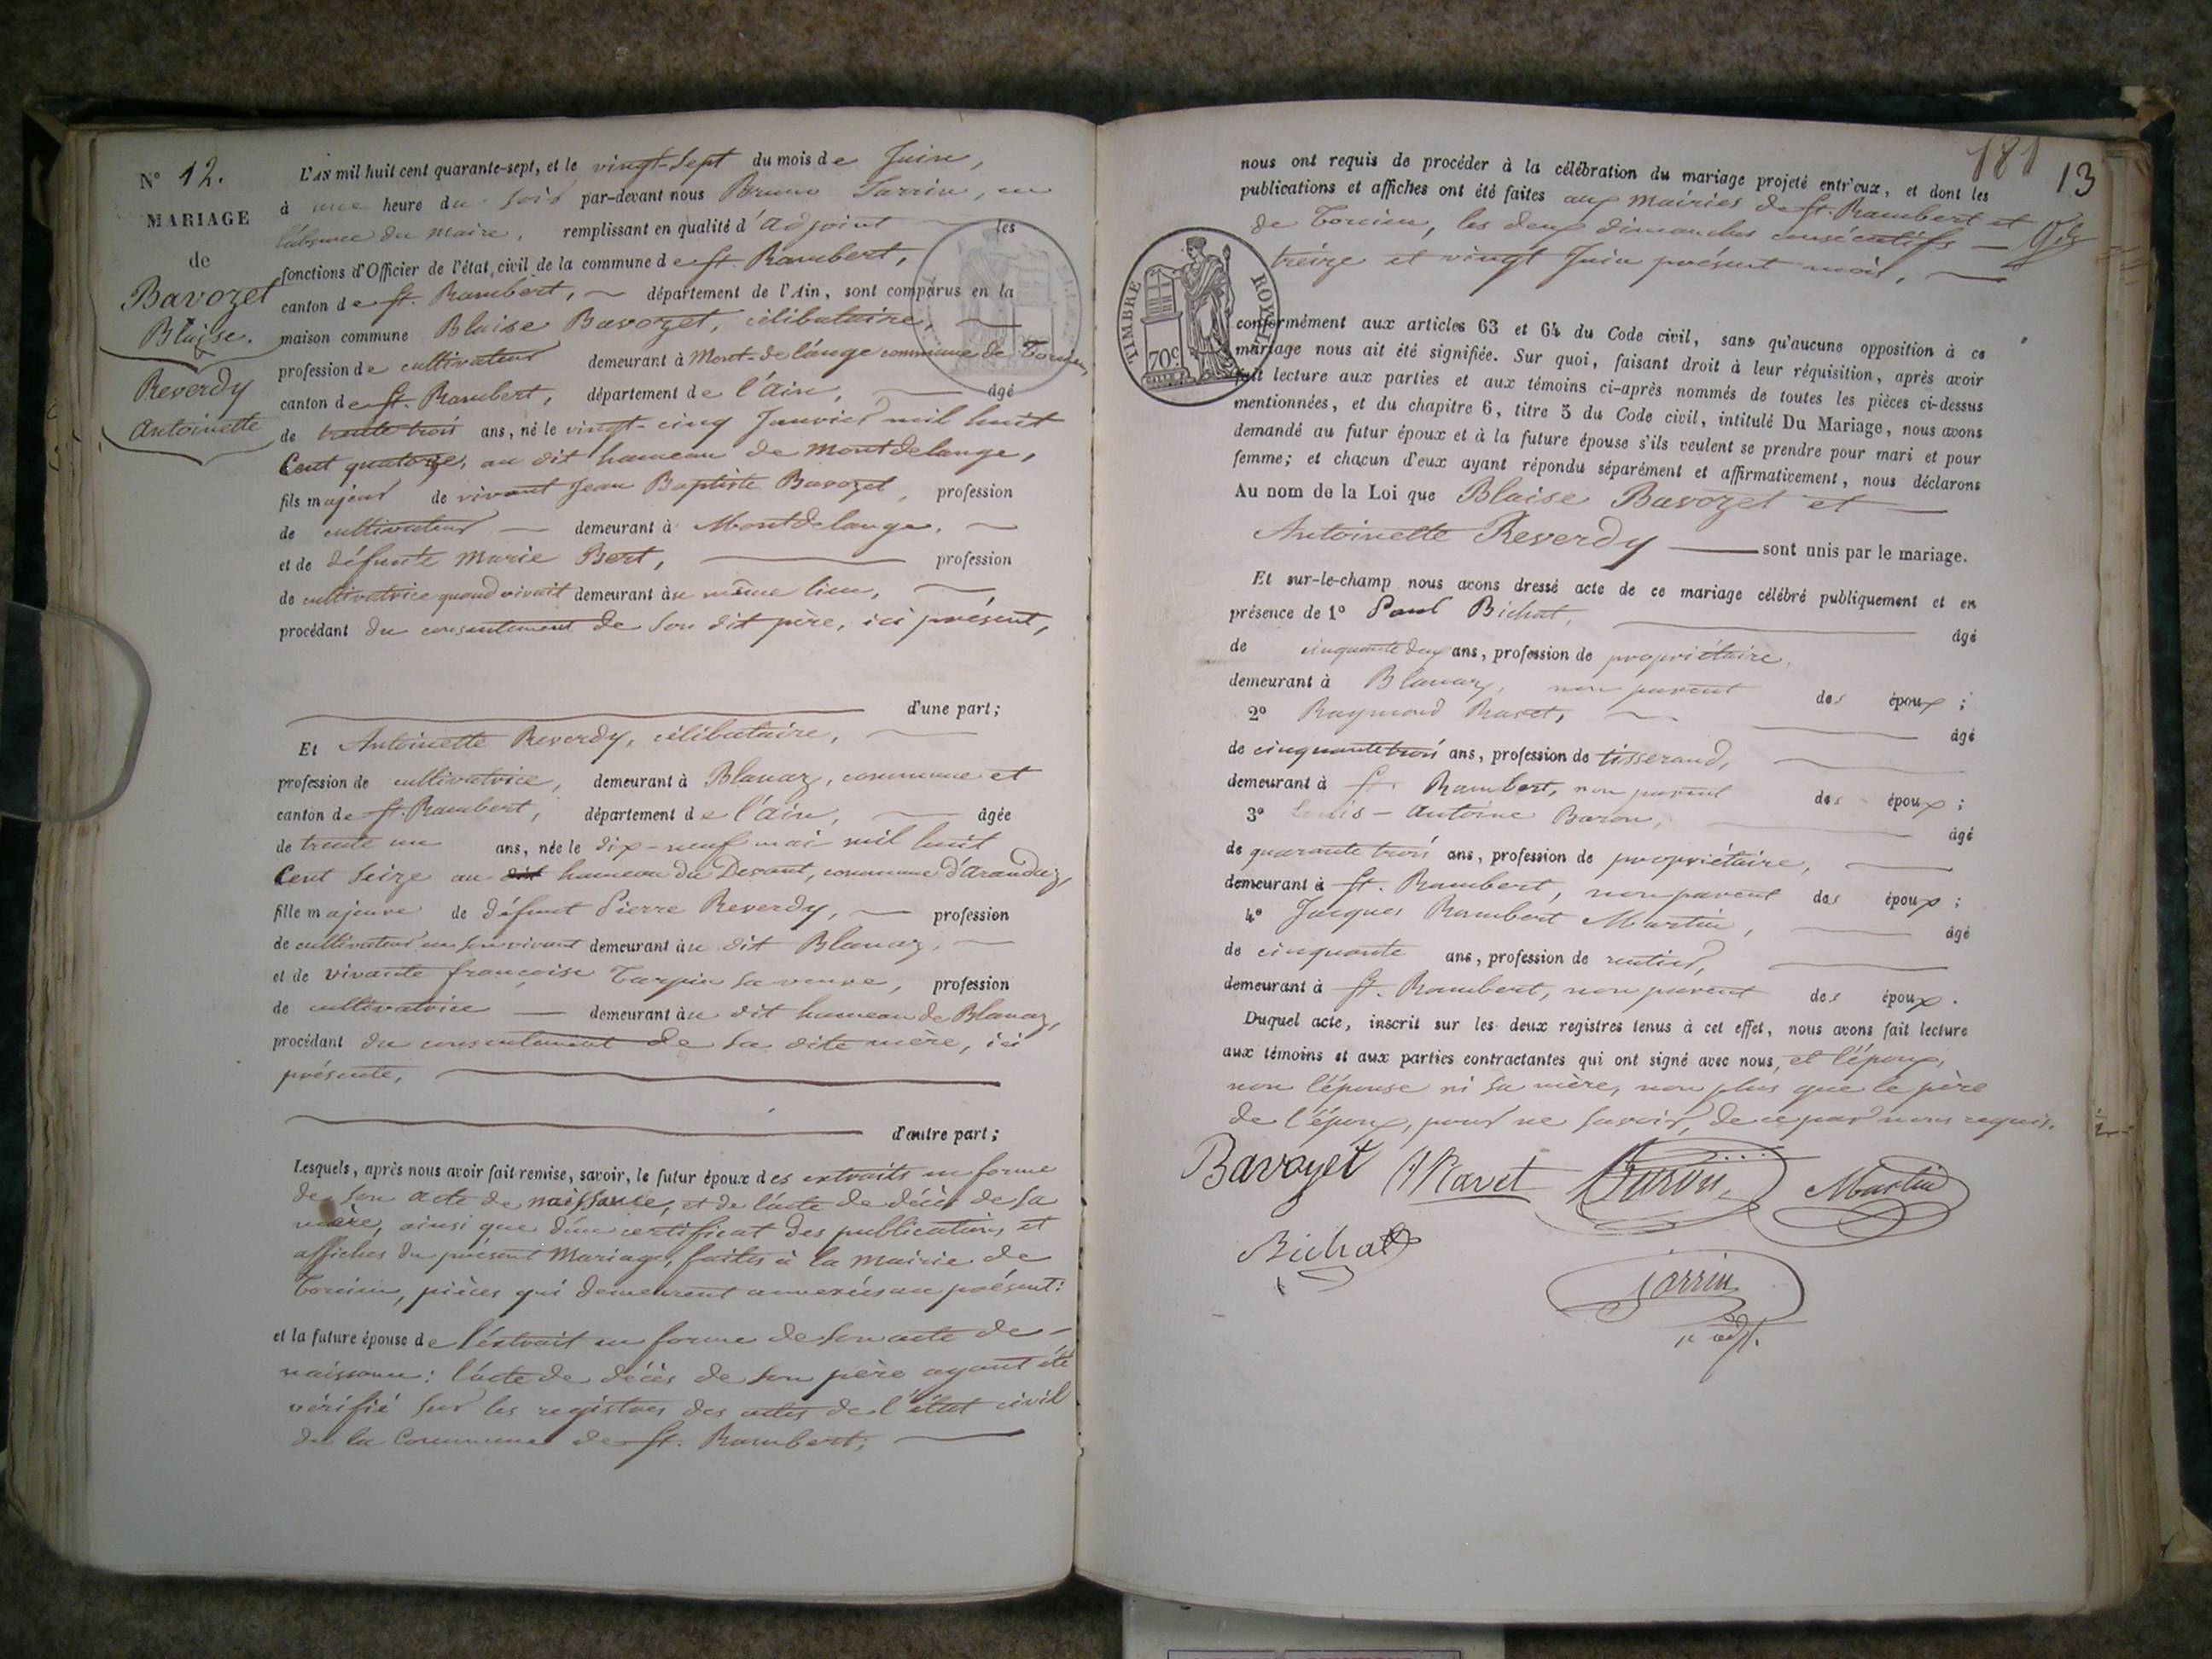 N° 12.
MARIAGE
de
Bavozet
Blaise.
Reverdy
Antoinette
L'AN mil huit cent quarante-sept, et le vingt-sept du mois de Juin,
à une heure du soir par-devant nous Bruno Sarrin, en
l'absence du maire, remplissant en qualité d'adjoint les
fonctions d'Officier de l'état civil de la commune de St. Rambert,
canton de St. Rambert, département de l'Ain, sont comparus en la
maison commune Blaise Bavozet, célibataire,
profession de cultivateur demeurant à Mont-de-lange commune de Torcieu,
canton de St. Rambert, département de l'ain, âgé
de trente trois ans, né le vingt-cinq Janvier mil huit
Cent quatorze, au dit hameau de Montdelange,
fils majeur de vivant Jean Baptiste Bavozet, profession
de cultivateur demeurant à Montdelange,
et de défunte Marie Bert, profession
de cultivatrice quand vivait demeurant au même lieu,
procédant du consentement de son dit père, ici présent,
d'une part;
Et Antoinette Reverdy, célibataire,
profession de cultivatrice, demeurant à Blanaz, commune et
canton de St. Rambert, département de l'ain, âgée
de trente un ans, née le dix-neuf mai mil huit
Cent Seize au dit hameau du Devant, commune d'arandaz,
fille majeure de défunt Pierre Reverdy, profession
de cultivateur en son vivant demeurant au dit Blanaz,
et de vivante françoise Tarpin sa veuve, profession
de cultivatrice demeurant au dit hameau de Blanaz,
procédant du consentement de sa dite mère, ici
présente,
d'autre part;
Lesquels, après nous avoir fait remise, savoir, le futur époux des extraits en forme
de son acte de naissance, et de l'acte de décès de sa
mère, ainsi que d'un certificat des publications et
affiches du présent Mariage, faites à la Mairie de
Torcieu, pièces qui demeurent annexées au présent:
et la future épouse de l'extrait en forme de son acte de
naissance: l'acte de décès de son père ayant été
vérifié sur les registres des actes de l'état civil
de la Commune de St. Rambert;
181
13
nous ont requis de procéder à la célébration du mariage projeté entr'eux, et dont les
publications et affiches ont été faites aux mairies de St. Rambert et
de Torcieu, les deux dimanches consécutifs
treize et vingt Juin présent mois,
TIMBRE ROYAL
70c
conformément aux articles 63 et 64 du Code civil, sans qu'aucune opposition à ce
mariage nous ait été signifiée. Sur quoi, faisant droit à leur réquisition, après avoir
fait lecture aux parties et aux témoins ci-après nommés de toutes les pièces ci-dessus
mentionnées, et du chapitre 6, titre 5 du Code civil, intitulé Du Mariage, nous avons
demandé au futur époux et à la future épouse s'ils veulent se prendre pour mari et pour
femme; et chacun d'eux ayant répondu séparément et affirmativement, nous déclarons
Au nom de la Loi que Blaise Bavozet et
Antoinette Reverdy sont unis par le mariage.
Et sur-le-champ nous avons dressé acte de ce mariage célébré publiquement et en
présence de 1° Paul Bichat, âgé
de cinquante deux ans, profession de propriétaire,
demeurant à Blanaz, non parent des époux;
2° Raymond Ravet, âgé
de cinquante trois ans, profession de tisserand,
demeurant à St. Rambert, non parent des époux;
3° Louis-Antoine Baron, âgé
de quarante trois ans, profession de propriétaire,
demeurant à St. Rambert, non parent des époux;
4° Jacques Rambert Martin, âgé
de cinquante ans, profession de rentier,
demeurant à St. Rambert, non parent des époux.
Duquel acte, inscrit sur les deux registres tenus à cet effet, nous avons fait lecture
aux témoins et aux parties contractantes qui ont signé avec nous, et l'époux,
non l'épouse ni sa mère, non plus que le père
de l'époux, pour ne savoir, de ce par nous requis.
Bavozet Ravet Baron Martin
Bichat
Sarrin